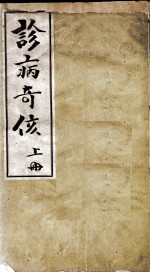 診病奇侅
上冊